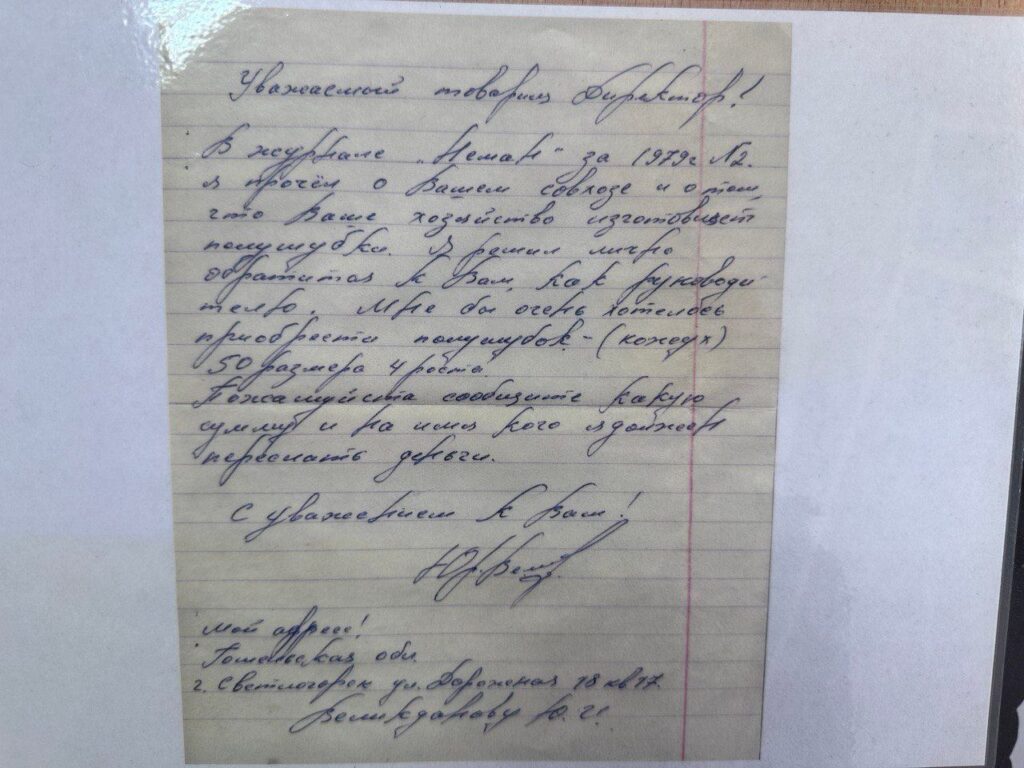 Уважаемый товарищ Директор!
В журнале „Неман" за 1979г №2.
я прочёл о Вашем совхозе и о том,
что Ваше хозяйство изготовляет
полушубки. Я решил лично
обратится к Вам, как руководи-
телю. Мне бы очень хотелось
приобрести полушубок - (кожух)
50 размера 4 роста.
Пожалуйста сообщите какую
сумму и на имя кого я должен
переслать деньги.
С уважением к Вам!
Мой адрес!
Гомельская обл.
г. Светлогорск ул. Дорожная 18 кв 17.
Великданову Ю.